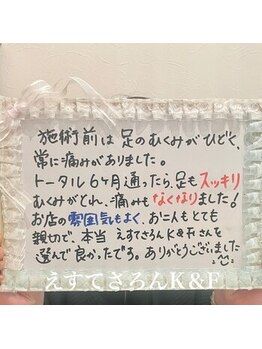 施術前は足のむくみがひどく、
常に痛みがありました。
トータル6ヶ月通ったら、足もスッキリ
むくみがとれ、痛みもなくなりました!
お店の雰囲気もよく、お二人もとても
親切で、本当 えすてさろんK&Fさんを
選んで良かったです。ありがとうございました
えすてさろんK&F